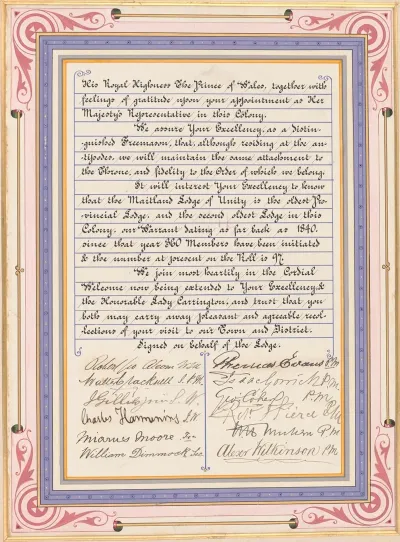 His Royal Highness The Prince of Wales, together with
feelings of gratitude upon your appointment as Her
Majesty's Representative in this Colony.
We assure Your Excellency, as a Distin-
guished Freemason, that, although residing at the an-
tipodes, we will maintain the same attachment to
the Throne, and fidelity to the Order of which we belong.
It will interest Your Excellency to know
that the Maitland Lodge of Unity is the oldest Pro-
vincial Lodge, and the second oldest Lodge in this
Colony, our Warrant dating as far back as 1840.
since that year 360 Members have been initiated
& the number at present on the Roll is 97.
We join most heartily in the Cordial
Welcome now being extended to Your Excellency, &
the Honorable Lady Carrington, and trust that you
both may carry away pleasant and agreeable recol-
lections of your visit to our Town and District.
Signed on behalf of the Lodge.
Thomas Evans P.M.
I.P.M.
P.M.
J Gillies
P.M.
Charles
P.M.
Moore
P.M.
William Dimmock Sec
Alexr Wilkinson P.M.